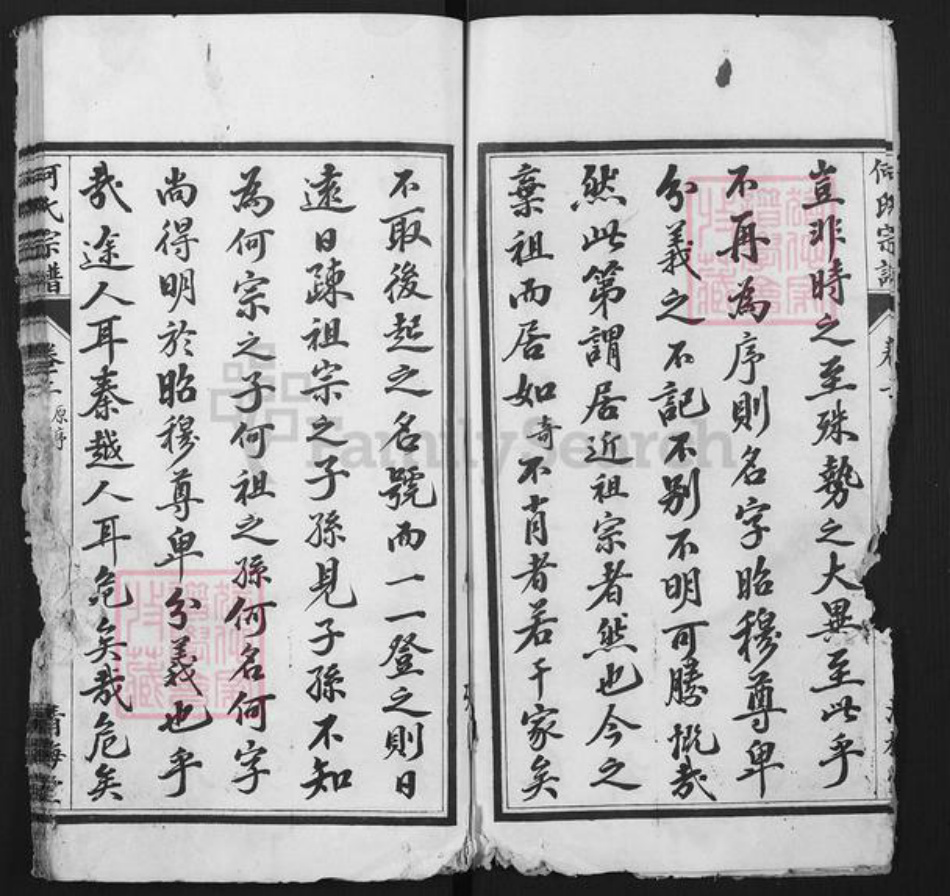 何氏宗譜
豈非時之至殊勢之大異至此乎
不再為序則名字昭穆尊卑
分義之不記不別不明可勝慨哉
然此第謂居近祖宗者然也今之
棄祖而居如奇不肖者若干家矣
不取後起之名號而一一登之則日
遠日疎祖宗之子孫見子孫不知
為何宗之子何祖之孫何名何字
尚得明於昭穆尊卑分義也乎
哉途人耳秦越人耳危矣哉危矣
何氏宗譜
卷二 原序
清海堂
FamilySearch